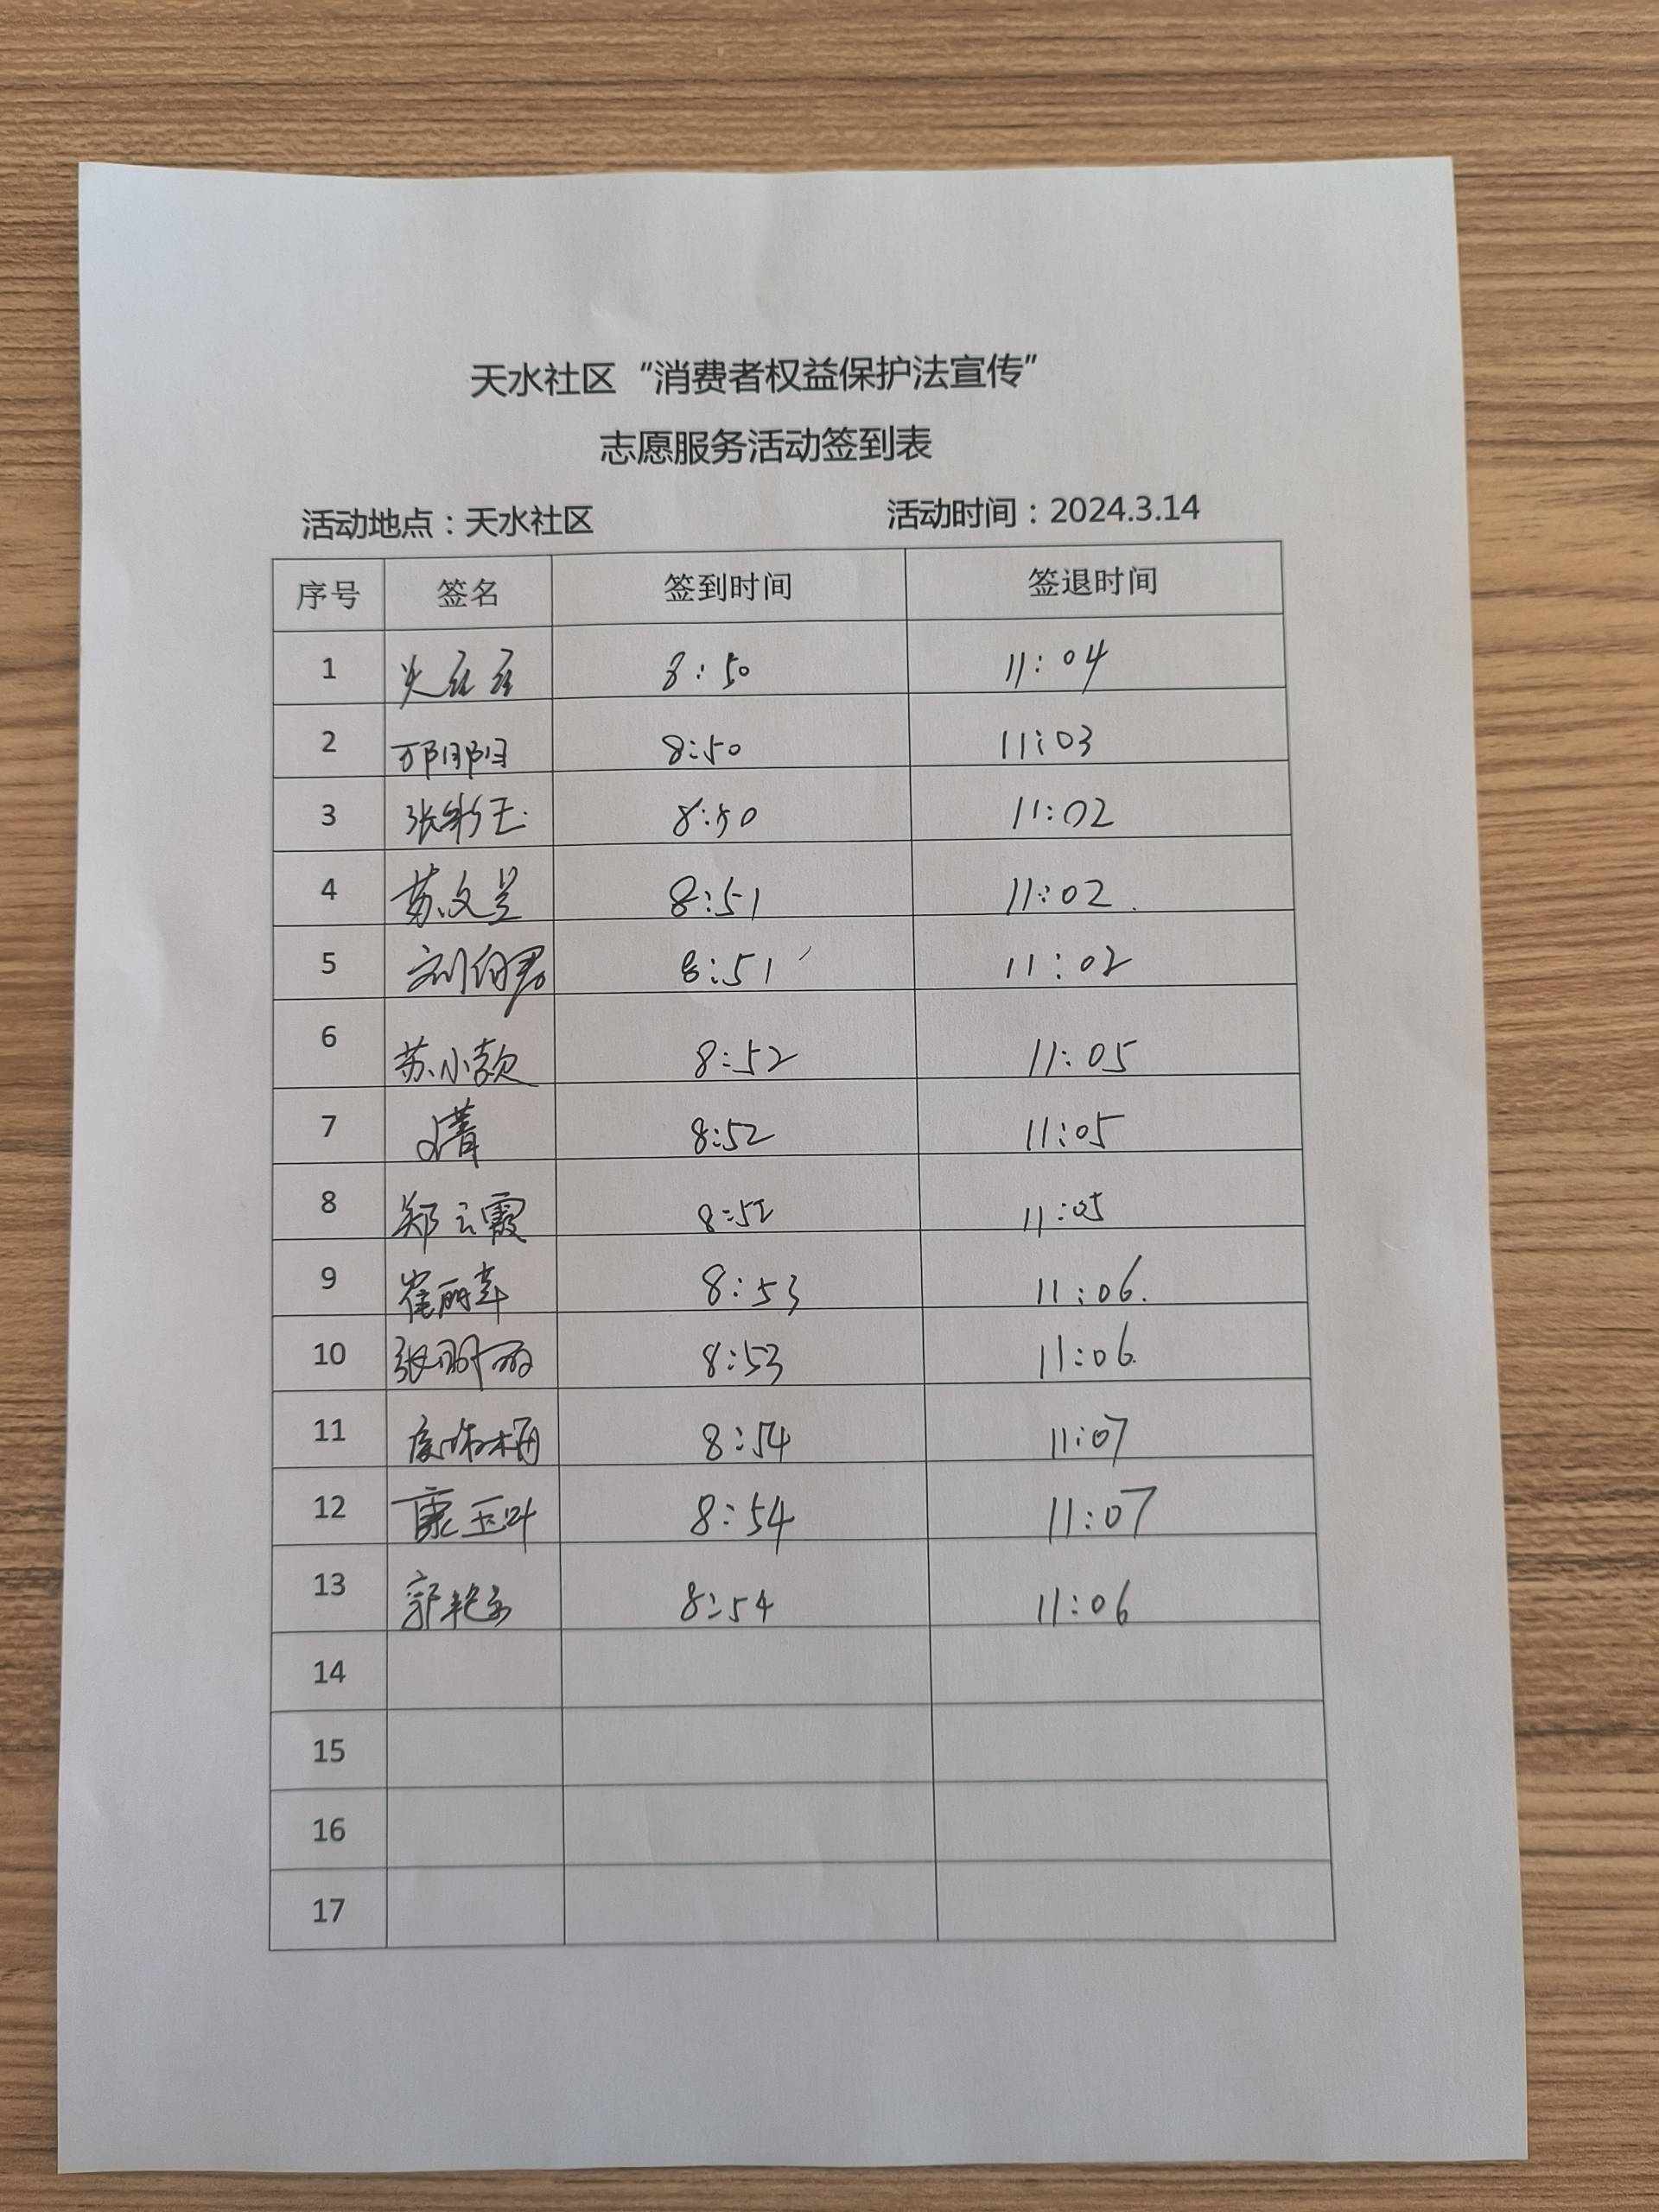 天水社区“消费者权益保护法宣传”
志愿服务活动签到表
活动地点：天水社区 活动时间：2024.3.14
序号 签名 签到时间 签退时间
1 8:50 11:04
2 8:50 11:03
3 张彩玉 8:50 11:02
4 苏文昱 8:51 11:02
5 刘向君 8:51 11:02
6 苏小颜 8:52 11:05
7 8:52 11:05
8 郑云霞 8:52 11:05
9 崔丽萍 8:53 11:06
10 张明丽 8:53 11:06
11 8:54 11:07
12 康玉叶 8:54 11:07
13 郭艳 8:54 11:06
14
15
16
17